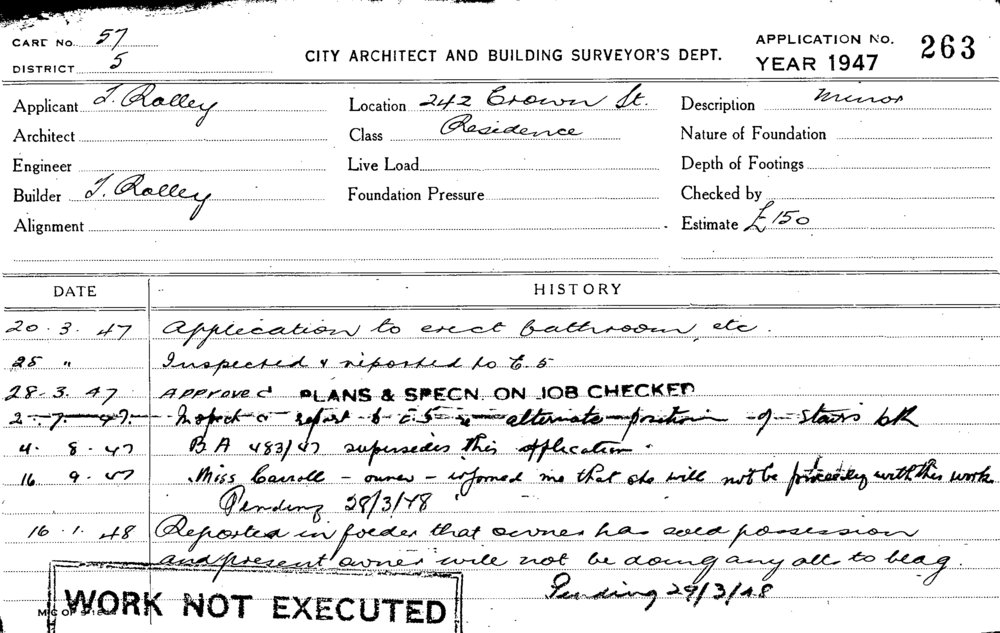 CARD No. 57
DISTRICT 5
CITY ARCHITECT AND BUILDING SURVEYOR'S DEPT.
APPLICATION No. 263
YEAR 1947
Applicant T. Rolley
Location 242 Crown St.
Description Minor
Architect
Class Residence
Nature of Foundation
Engineer
Live Load
Depth of Footings
Builder T. Rolley
Foundation Pressure
Checked by
Alignment
Estimate £150
DATE HISTORY
20.3.47 Application to erect bathroom etc.
25 " Inspected & reported to E.5
28.3.47 APPROVED PLANS & SPECN. ON JOB CHECKED
2.7.47. Inspect & report to E.5 re alternate position of stairs
4.8.47 BA 483/47 supersedes this application.
16 9.47 Miss Carroll - owner - informed me that she will not be proceeding with this work
Pending 28/3/48
16.1.48 Reported in folder that owner has sold possession
and present owner will not be doing any alts to bldg.
Pending 29/3/48
WORK NOT EXECUTED